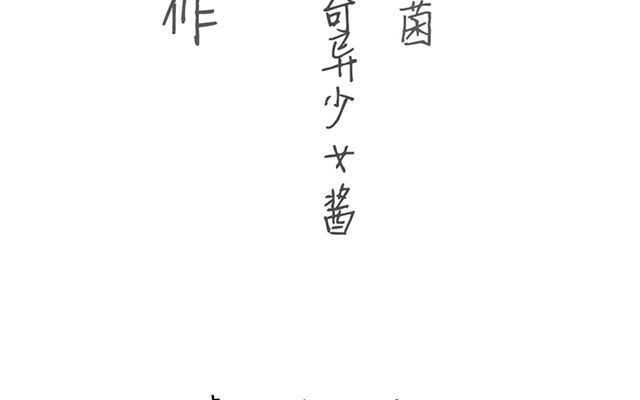 菌
奇异少女酱
作